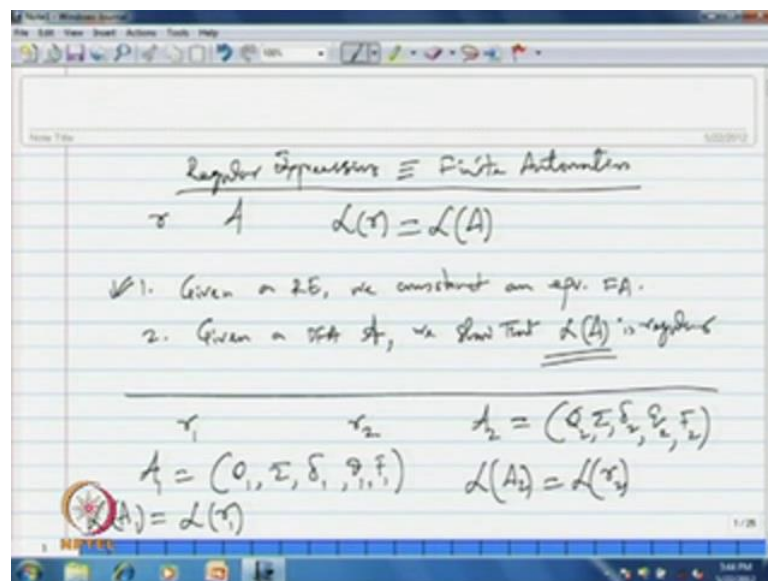 Note1 - Windows Journal
File Edit View Insert Actions Tools Help
Note Title
5/22/2012
Regular Expressions ≡ Finite Automaton
r A L(r) = L(A)
1. Given a RE, we construct an eqv. FA.
2. Given a DFA A, we show that L(A) is regular
r₁ r₂ A₂ = (Q₂, Σ, δ₂, q₂, F₂)
A₁ = (Q₁, Σ, δ₁, q₁, F₁) L(A₂) = L(r₂)
L(A₁) = L(r₁)
1/25
NPTEL
5:44 PM